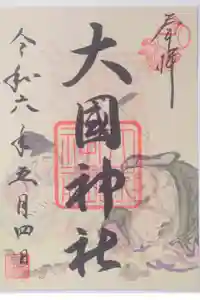 奉拝
大國神社
令和六年五月四日